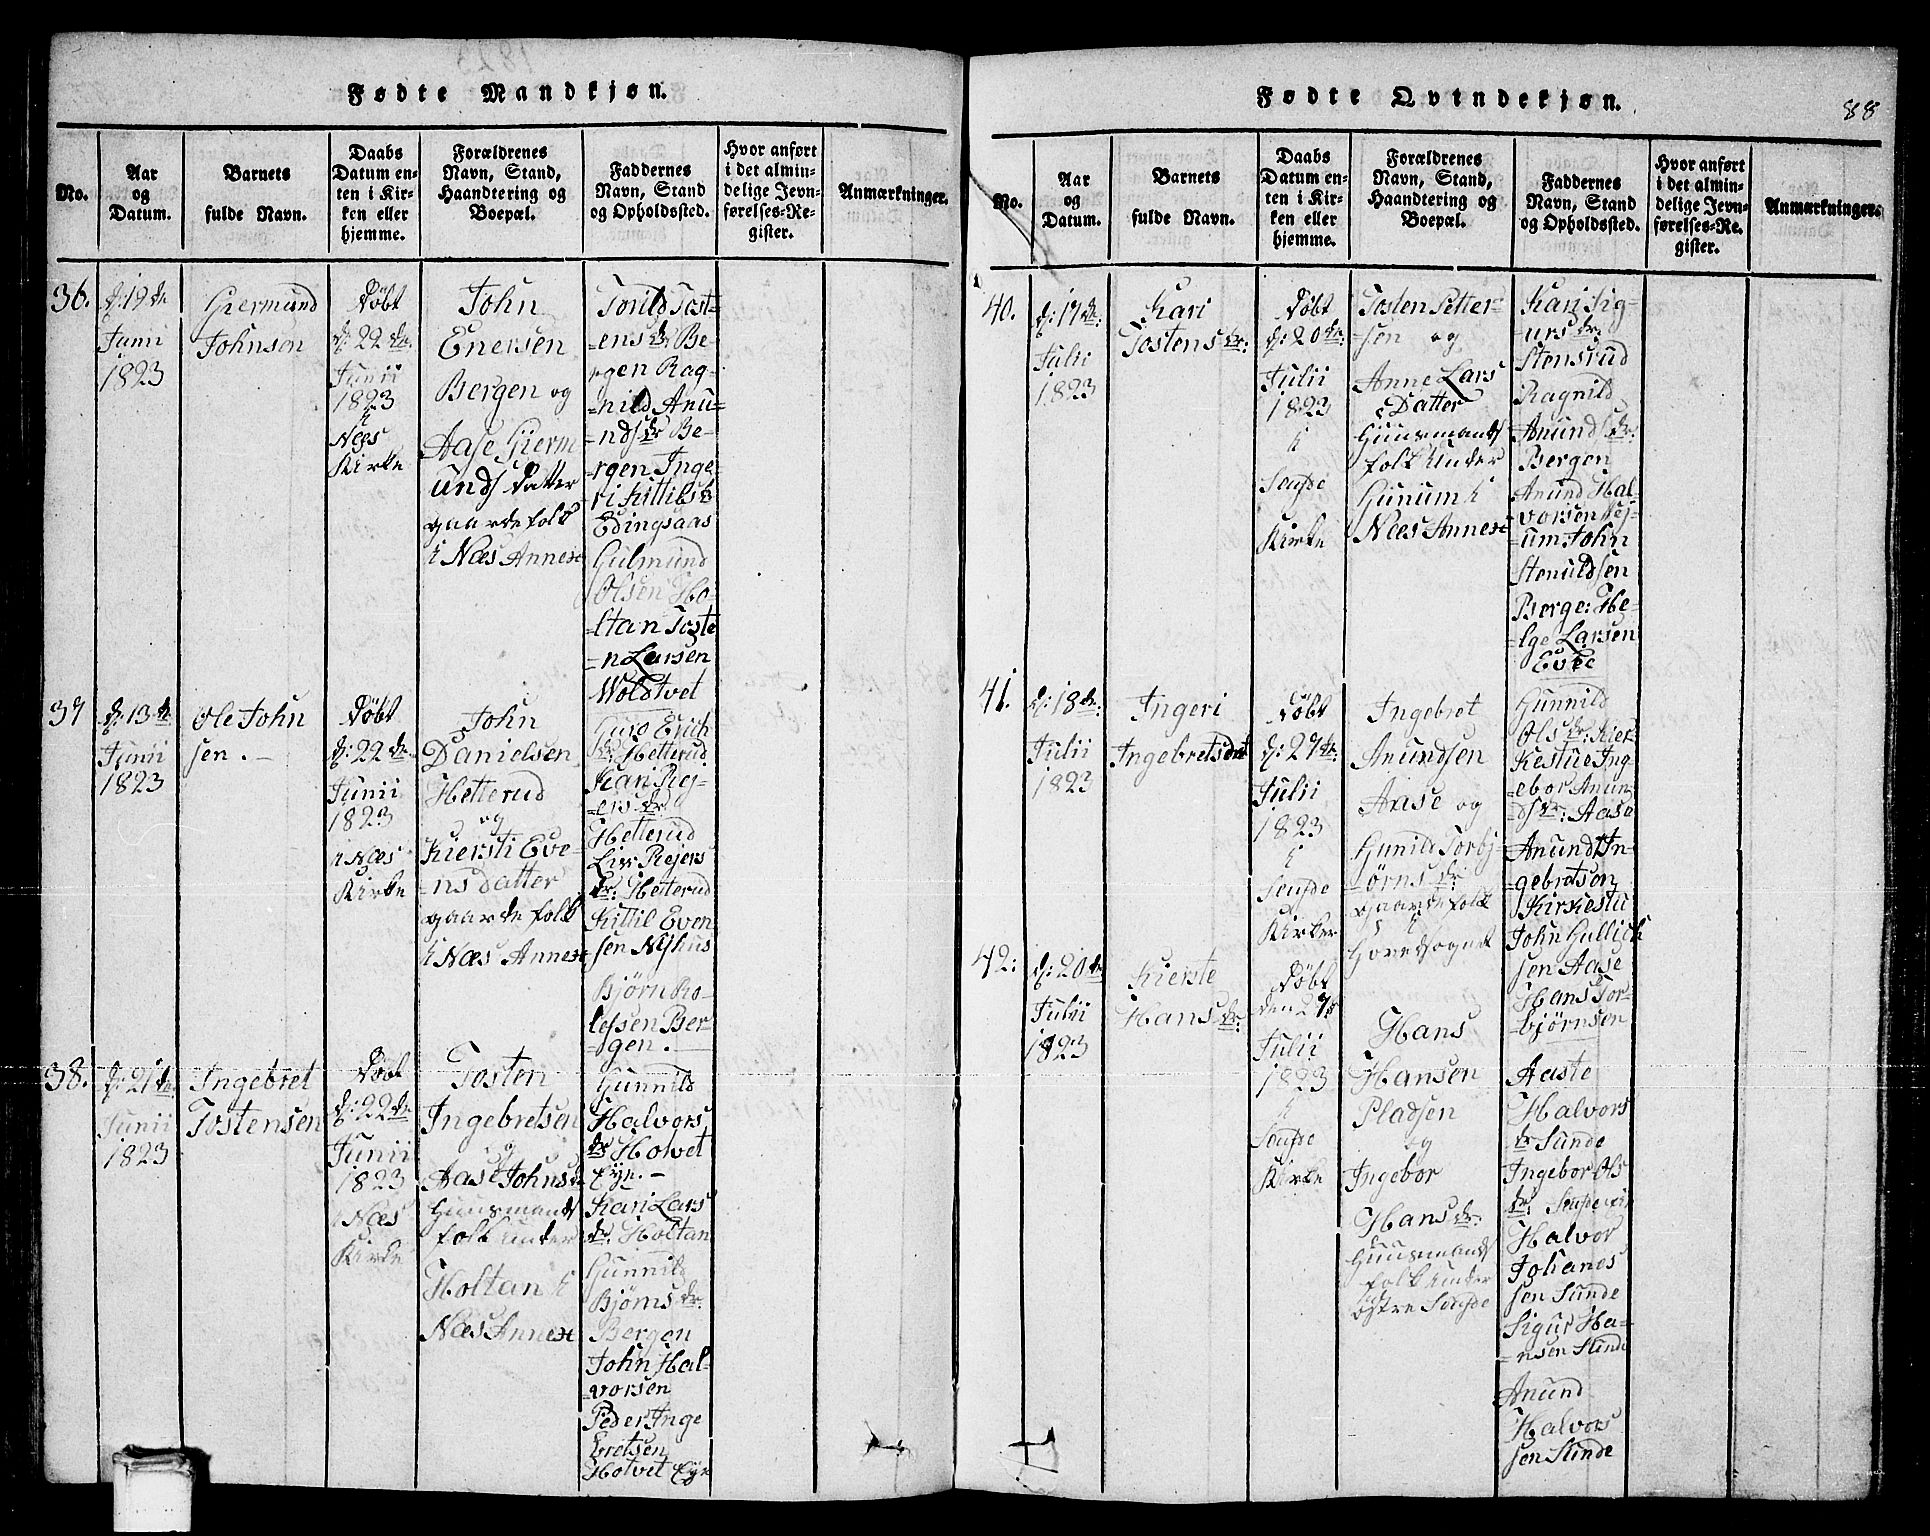 Fødte Mandkjøn.
No.
Aar
og
Datum.
Barnets
fulde Navn.
Daabs
Datum en-
ten i Kir-
ken eller
hjemme.
Forældrenes
Navn, Stand,
Haandtering og
Boepæl.
Faddernes
Navn, Stand
og Opholdssted.
Hvor anført
i det almin-
delige Jevn-
førelses-Re-
gister.
Anmærkninger.
36.
d: 19de
Junii
1823
Giermund
Johnsen
Døbt
d: 22de
Junii
1823
i
Næs
Kirke
John
Enersen
Bergen og
Aase Gierm
unds Datter
gaardefolk
i Næs Annex
Torild Tost-
ens dr Be-
rgen Rag-
nild Anu-
nds dr Be-
rgen Inge-
ri Kittils dr
Edingsaas
Gulmund
Olsen Ho-
ltan Toste
n Larsen
Woldtvet
37
d: 13de
Junii
1823
Ole John
sen. -
Døbt
d: 22de
Junii
1823
i Næs
Kirke
John
Danielsen
Hetterud
og
Kiersti Eve-
ns Datter
gaardefolk
i Næs Annex
Guro Erich
dr Hetterud
Kari Rej-
ers dr
Hetterud
Liv Rejers
dr: Hetterud
Kittil Even
sen Nyhus
Bjørn Ro-
lefsen Ber-
gen.
38.
d: 21de
Junii
1823
Ingebret
Tostensen
Døbt
d: 22de
Junii
1823
i Næs
Kirke
Tosten
Ingebretsen
og
Aase Johnsd
Huusmands
folk under
Holtan i
Næs Annex
Gunnild
Halvors
dr Hotvet
Eye. -
Kari Lars
dr: Holtan
Gunnild
Bjørns dr:
Bergen
John Hal-
vorsen
Peder Inge
bretsen
Hotvet Eye
Fødte Qvindekjøn.
88
No.
Aar
og
Datum.
Barnets
fulde Navn.
Daabs
Datum en-
ten i Kir-
ken eller
hjemme.
Forældrenes
Navn, Stand,
Haandtering og
Boepæl.
Faddernes
Navn, Stand
og Opholdssted.
Hvor anført
i det almin-
delige Jevn-
førelses-Re-
gister.
Anmærkninger.
40.
d: 17de:
Julii
1823
Kari
Tostens dr:
Døbt
d: 20de:
Julii
1823
i
Kirke
Tosten Petter-
sen og
Anne Lars
Datter
Huusmands
folk under
Gunum i
Næs Annex
Kari Sig-
urs dr:
Stensrud
Ragnild
Anunds dr:
Bergen
Anund Hal-
vorsen
um John
Stenuldsen
Berge: He-
lge Larsen
Evje
41.
d: 18de:
Julii
1823
Ingeri
Ingebretsdat
Døbt
d: 27de
Julii
1823
i
Kirker
Ingebret
Anundsen
Aase og
Gunild Torbj
ørns dr
gaardefolk
i
Hovedsognet
Gunnild
Ols dr: Kier
Kestue Ing
ebor Anun
ds dr: Aase
Anund In-
gebretsen
Kirkestu
John Gullich
sen Aase
Hans Tor-
bjørnsen
42:
d: 20de
Julii
1823
Kierste
Hans dr:
Døbt
den 27de
Julii
1823
i
Kirke
Hans
Hansen
Pladsen
og
Ingebor
Hans dr:
Huusmands
folk under
østre
Aaste
Halvors
dr Sunde
Ingebor Ols
dr:
Halvor
Johanes
sen Sunde
Sigur Ha-
nsen Slinde
Anund
Halvors
sen Slinde